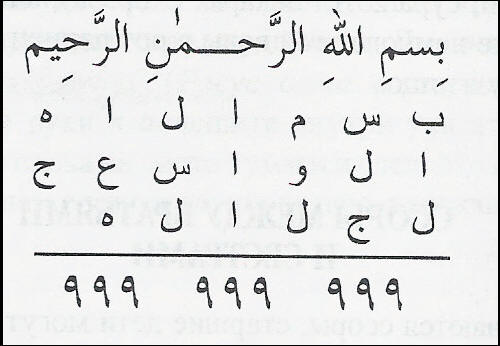 بسمِ اللهِ الرَّحـــمٰنِ الرَّحيم
ب س م ا ل ا ه
ا ل و ا س ع ج
ل ج ل ل ه
٩٩٩ ٩٩٩ ٩٩٩